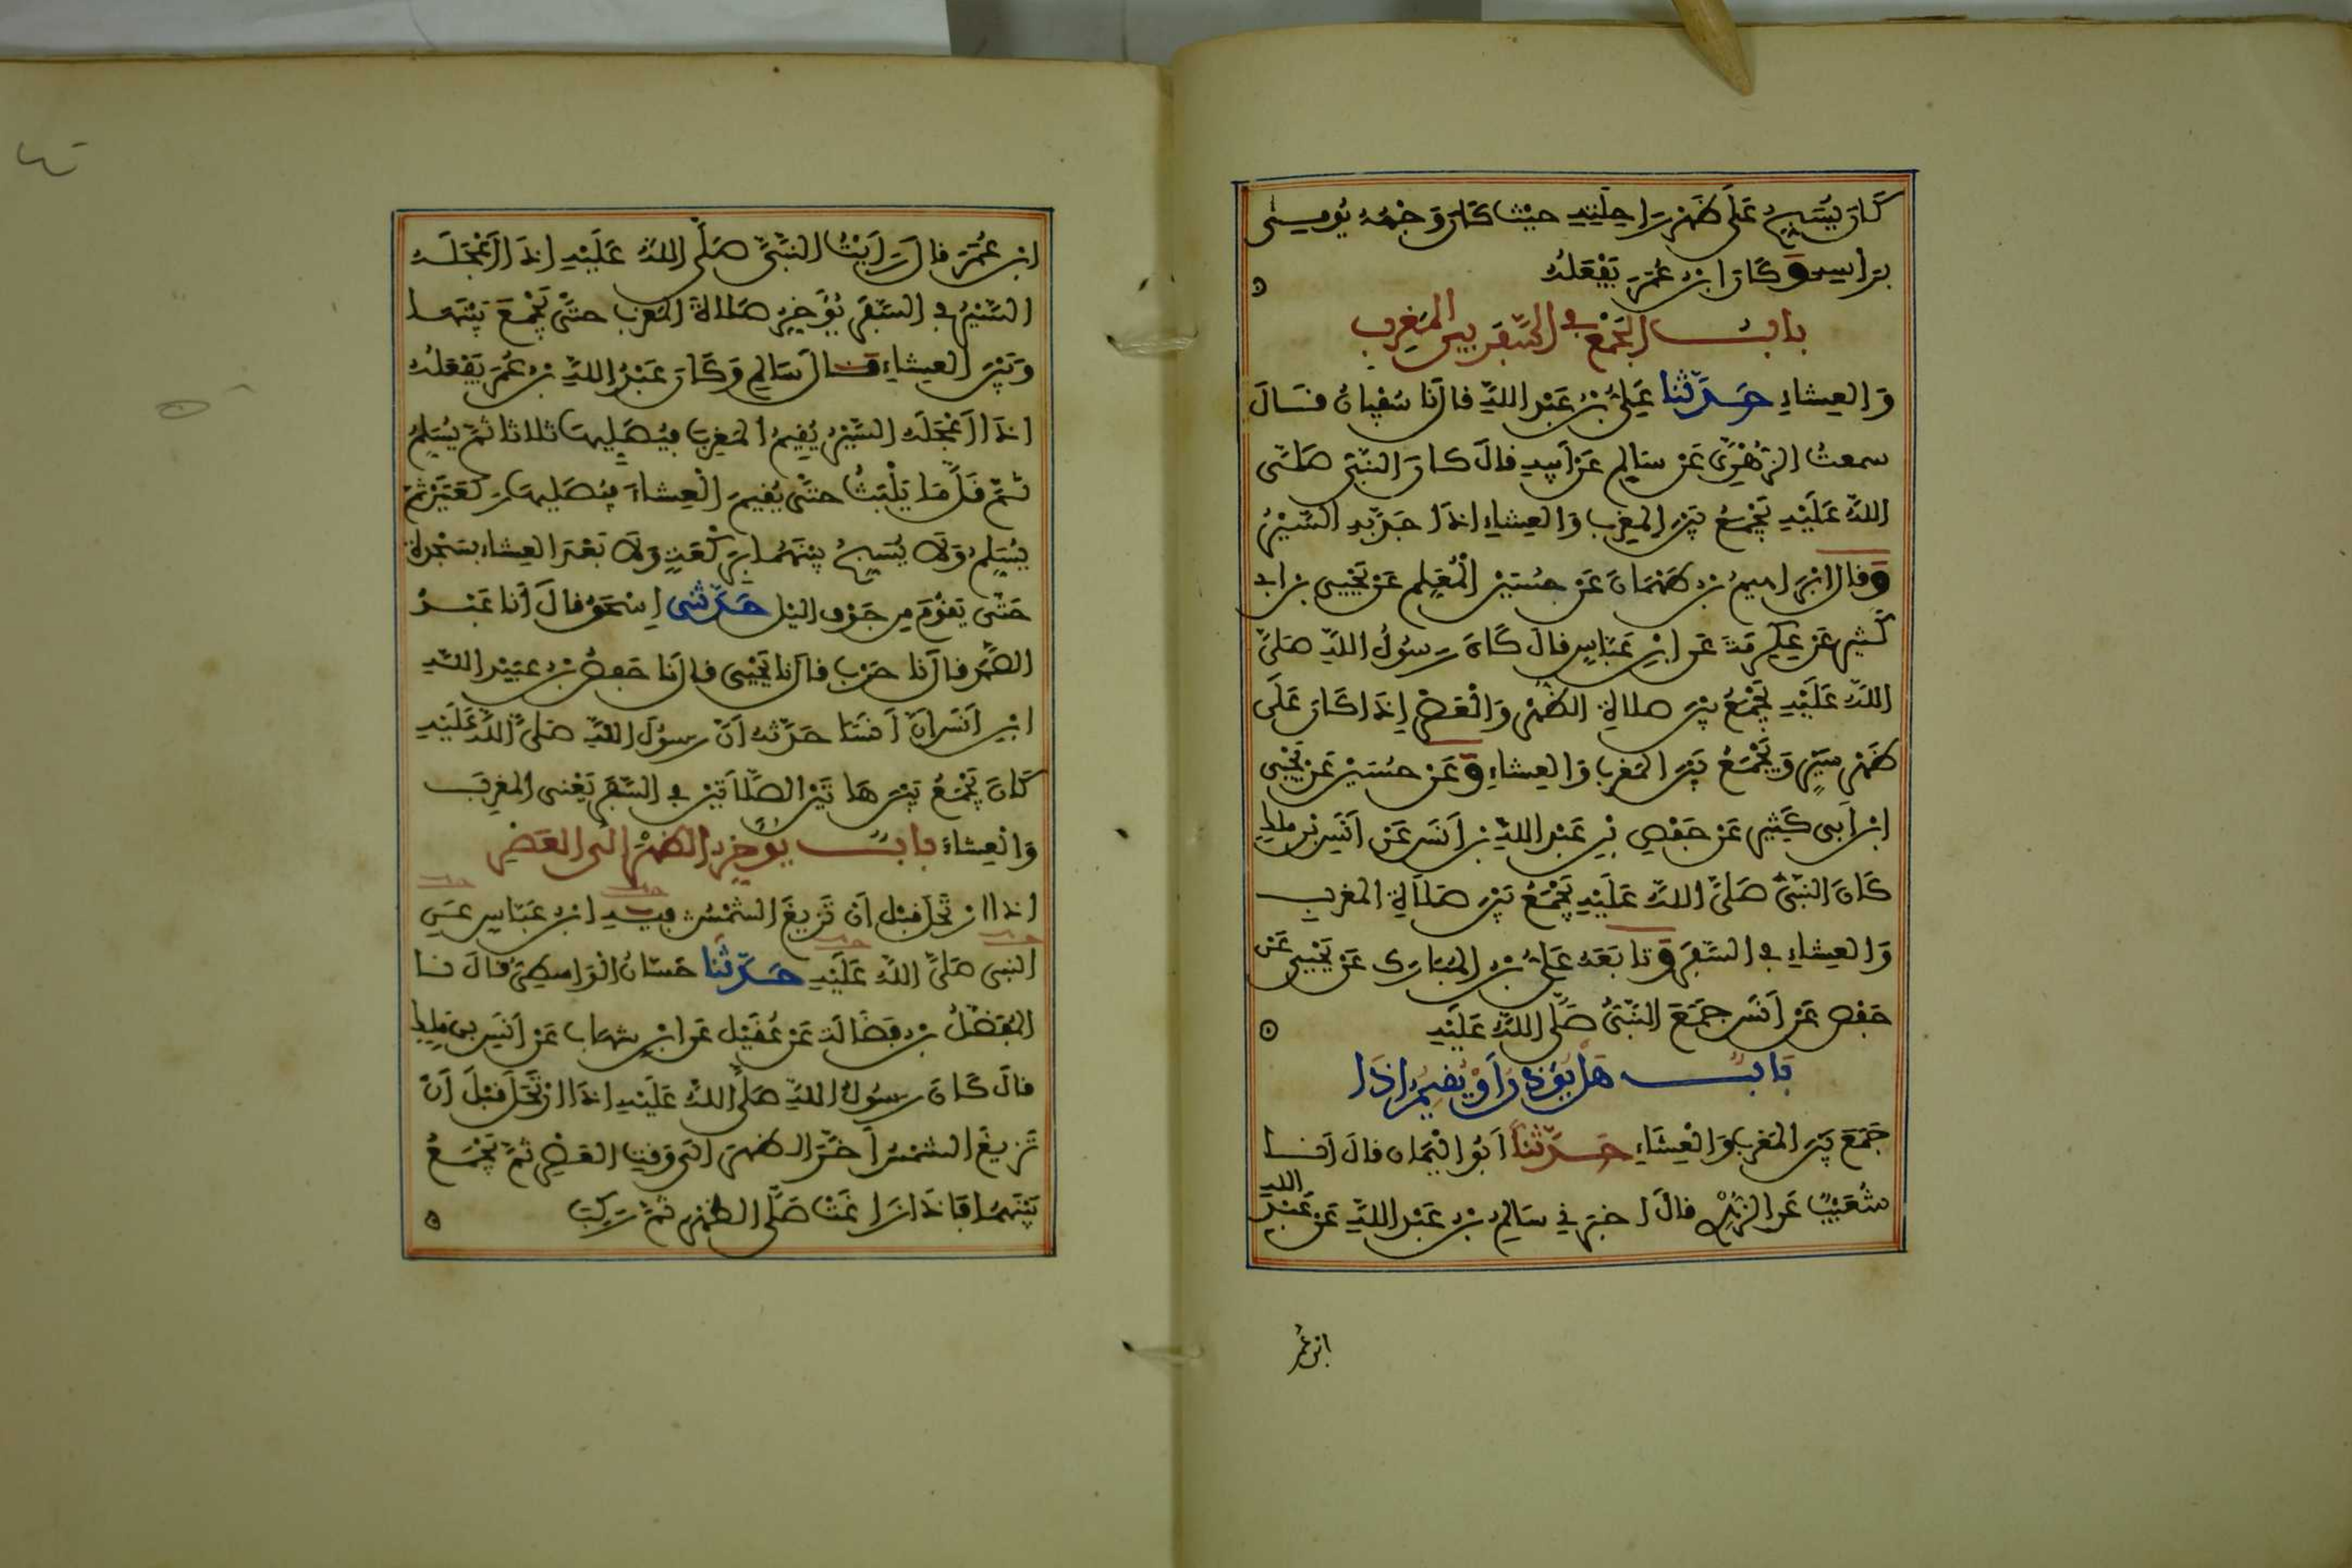 كَانَ يُسَبِّحُ عَلَى ظَهْرِ رَاحِلَتِهِ حيْثُ كَانَ وَجْهُهُ يُومِئُ
بِرَأسِهِ وَكَانَ ابْنُ عُمَرَ يَفْعَلُهُ
بابُ الجَمْعِ في السَّفَرِ بين المَغرِبِ
وَالعِشاءِ حَدَّثَنا عَلِيُّ بْنُ عَبْدِ اللَّهِ قالَ نا سُفْيانُ قَالَ
سمعتُ الزُّهْرِيَّ عَنْ سَالِمٍ عَنْ أَبِيهِ قالَ كانَ النَّبِيُّ صَلَّى
اللَّهُ عَلَيْهِ يَجْمَعُ بَيْنَ المغْرِبِ وَالعِشاءِ إذَا جَدَّ بِهِ السَّيْرُ
وَقالَ إبْرَاهيمُ بْنُ طَهْمَانَ عَنْ حُسَيْنٍ الْمُعَلِّمِ عَنْ يَحْيَى بْنِ أبِي
كَثِيرٍ عَنْ عِكْرِمَةَ عَنِ ابْنِ عَبَّاسٍ قالَ كَانَ رَسُولُ اللَّهِ صَلَّى
اللَّهُ عَلَيْهِ يَجْمَعُ بَيْنَ صلاةِ الظُّهْرِ وَالْعَصْرِ إِذَا كَانَ عَلَى
ظَهْرِ سَيْرٍ وَيَجْمَعُ بَيْنَ المَغْرِبِ وَالعِشاءِ وَعَنْ حُسَيْنٍ عَنْ يَحْيَى
ابْنِ أَبِى كَثِيرٍ عَنْ حَفْصِ بْنِ عَبْدِ اللَّهِ بْنِ أَنَسٍ عَنْ أَنَسِ بْنِ مَلِكٍ
كَانَ النَّبِيُّ صَلَّى اللَّهُ عَلَيْهِ يَجْمَعُ بَيْنَ صَلَاةِ المغرب
وَالعِشاءِ في السَّفَرِ وَتابَعَهُ عَلِيُّ بْنُ المُبَارَكِ عَنْ يَحْيَى عَنْ
حَفْصٍ عَنْ أَنَسٍ جَمَعَ النَّبِيُّ صَلَّى اللَّهُ عَلَيْهِ
بَابُ هَلْ يُؤَذِّنُ أَوْ يُقِيمُ إذَا
جَمَعَ بَيْنَ المَغْرِبِ وَالْعِشَاءِ حَدَّثَنَا أَبُو الْيَمَانِ قالَ أَنَا
شُعَيْبٌ عَنِ الزُّهْرِيِّ قالَ أخبَرَنِي سَالِمُ بْنُ عَبْدِ اللَّهِ عَنْ عَبْدِ اللهِ
ابن عُمَرَ
ابْنِ عُمَرَ قالَ رَأَيْتُ النَّبِيَّ صَلَّى اللَّهُ عَلَيْهِ إذَا أَعْجَلَهُ
السَّيْرُ في السَّفَرِ يُؤَخِّرُ صَلَاةَ المَغْرِبِ حتَّى يَجْمَعَ بَيْنَهَا
وَبَيْنَ العِشاءِ قَالَ سَالِمٌ وَكَانَ عَبْدُ اللَّهِ بْنُ عُمَرَ يَفْعَلُهُ
إذَا أَعْجَلَهُ السَّيْرُ يُقِيمُ المَغرِبَ فيُصَلِّيهَا ثلاثا ثُمَّ يُسَلِّمُ
ثُمَّ قَلَّ مَا يَلْبَثُ حتَّى يُقِيمَ الْعِشاءَ فيُصَلِّيهَا رَكْعَتَيْنِ ثُمَّ
يُسَلِّمُ وَلَا يُسَبِّحُ بيْنَهُمَا بِرَكْعَةٍ وَلَا بَعْدَ العِشاءِ بسَجْدَةٍ
حَتَّى يَقُومَ مِن جَوْفِ اليْلِ حَدَّثَنِى إسْحَقُ قالَ أَنَا عَبْدُ
الصَّمَدِ قالَ نا حَرْبٌ قالَ نا يَحْيَى قالَ نا حَفصُ بْنُ عبَيْدِ اللَّهِ
ابْنِ أَنَسٍ أَنَّ أَنَسًا حَدَّثَهُ أَنَّ رَسولَ اللَّهِ صَلَّى اللَّهُ عَلَيْهِ
كَانَ يَجْمَعُ بَيْنَ هَاتَيْنِ الصَّلَاتَيْنِ في السَّفَرِ يَعْنِى المغرِبَ
وَالْعِشاءَ بابُ يُؤَخِّرُ الظُّهْرَ إلَى العَصْرِ
إذا ارْتَحَلَ قبْلَ أَنْ تَزِيغَ الشَّمْسُ فيهِ ابْنُ عَبَّاسٍ عَنِ
النبِى صَلَّى اللَّهُ عَلَيْهِ حَدَّثَنَا حَسَّانُ الْوَاسِطِيُّ قالَ نا
المُفَضَّلُ بْنُ فَضَالَةَ عَنْ عُقَيْلٍ عَنِ ابْنِ شِهَابٍ عَنْ أَنَسِ بْنِ مَلِكٍ
قالَ كَانَ رَسُولُ اللَّهِ صَلَّى اللَّهُ عَلَيْهِ إذَا ارْتَحَلَ قبْلَ أَنْ
تَزِيغَ الشمْسُ أَخَّرَ الظُهْرَ إلَى وَقْتِ العَصْرِ ثُمَّ يَجْمَعُ
بَيْنَهُمَا فَإذَا زَاغَتْ صَلَّى الظُّهْرَ ثُمَّ رَكِبَ